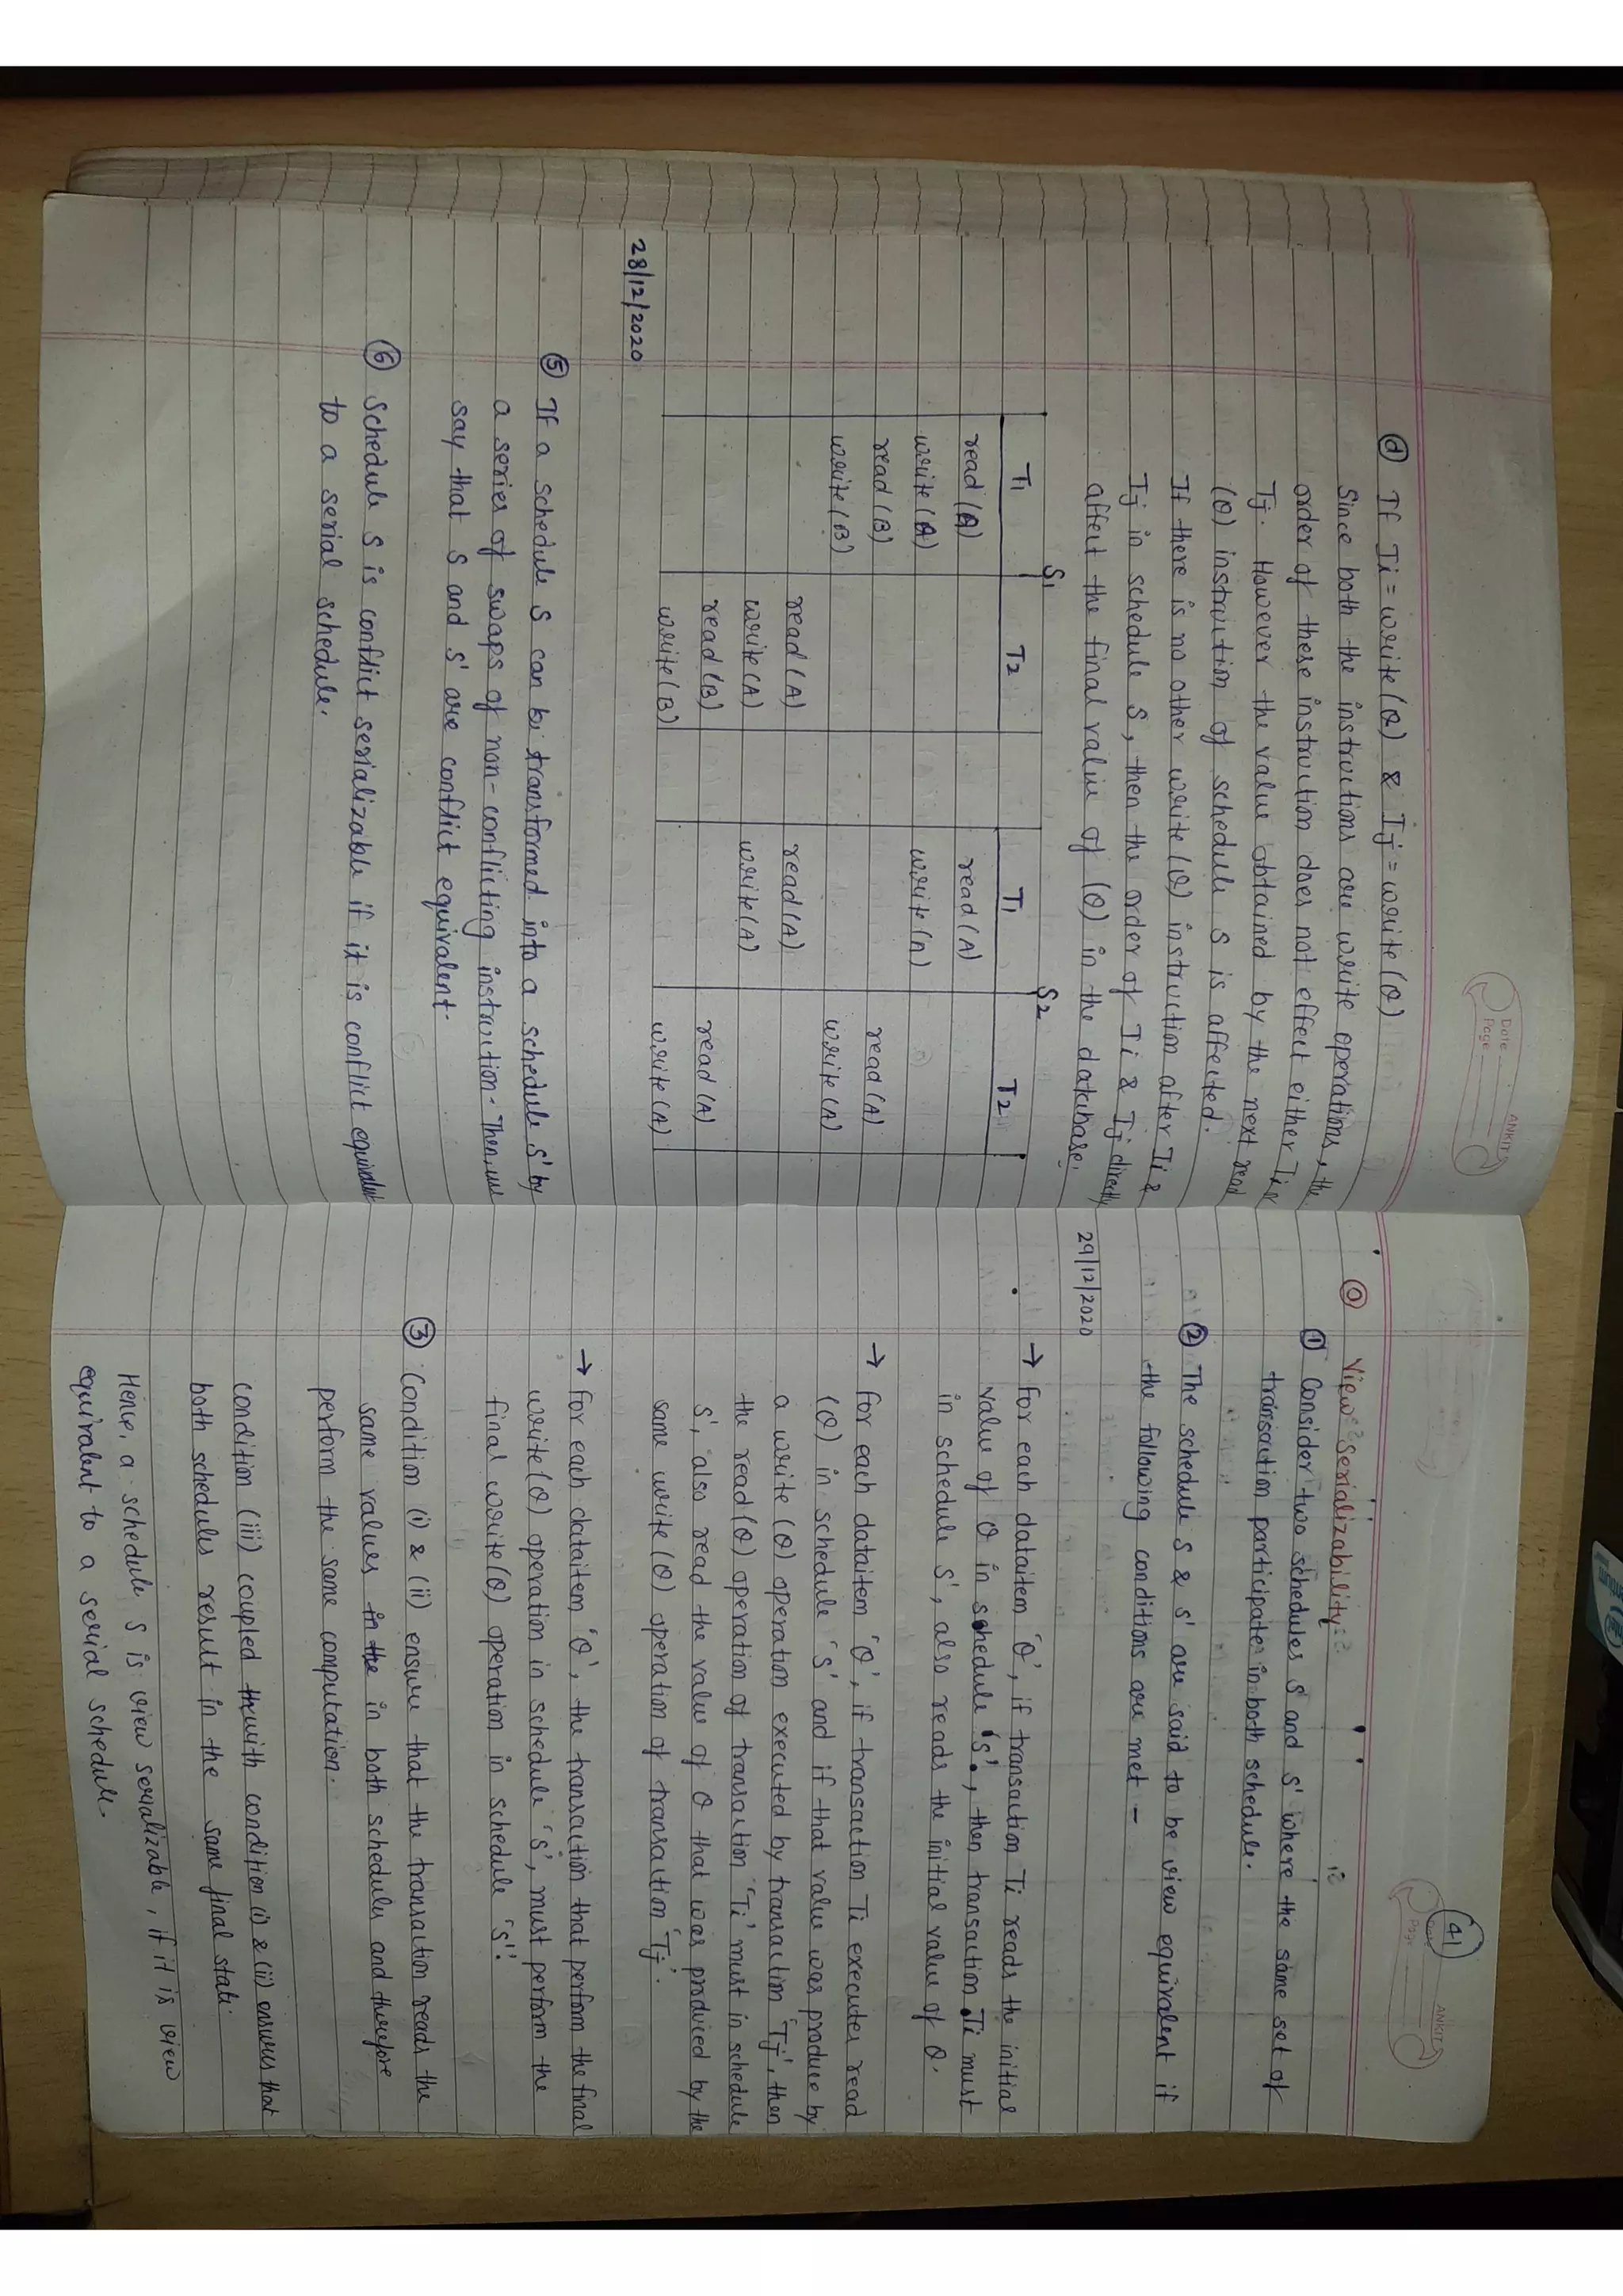 Date
Page
ANKIT
(d) If Ii = write(Q) & Ij = write(Q)
Since both the instructions are write operations, the
order of these instruction does not effect either Ti or
Tj. However the value obtained by the next read
(Q) instruction of schedule S is affected.
If there is no other write(Q) instruction after Ii &
Ij in schedule S, then the order of Ii & Ij directly
affect the final value of (Q) in the database.
S1 S2
T1 T2 T1 T2
read(A) read(A)
write(A) write(A)
read(B) read(A)
write(B) write(A)
read(A) read(A)
write(A) write(A)
read(B) read(A)
write(B) write(A)
28/12/2020
(5) If a schedule S can be transformed into a schedule S' by
a series of swaps of non-conflicting instruction. Then, we
say that S and S' are conflict equivalent.
(6) Schedule S is conflict serializable if it is conflict equivalent
to a serial schedule.
41
Date
Page
ANKIT
View Serializability:
(1) Consider two schedules S and S' where the same set of
transaction participate in both schedule.
(2) The schedule S & S' are said to be view equivalent if
the following conditions are met -
29/12/2020
→ For each dataitem 'Q', if transaction Ti reads the initial
value of Q in schedule 'S', then transaction Ti must
in schedule S', also reads the initial value of Q.
→ For each dataitem 'Q', if transaction Ti executes read
(Q) in schedule 'S' and if that value was produce by
a write(Q) operation executed by transaction 'Tj', then
the read(Q) operation of transaction 'Ti' must in schedule
S', also read the value of Q that was produced by the
same write(Q) operation of transaction 'Tj'.
→ For each dataitem 'Q', the transaction that perform the final
write(Q) operation in schedule 'S', must perform the
final write(Q) operation in schedule 'S''.
(3) Condition (i) & (ii) ensure that the transaction reads the
same values in the in both schedules and therefore
perform the same computation.
Condition (iii) coupled with condition (i) & (ii) ensures that
both schedules result in the same final state.
Hence, a schedule S is view serializable, if it is view
equivalent to a serial schedule.